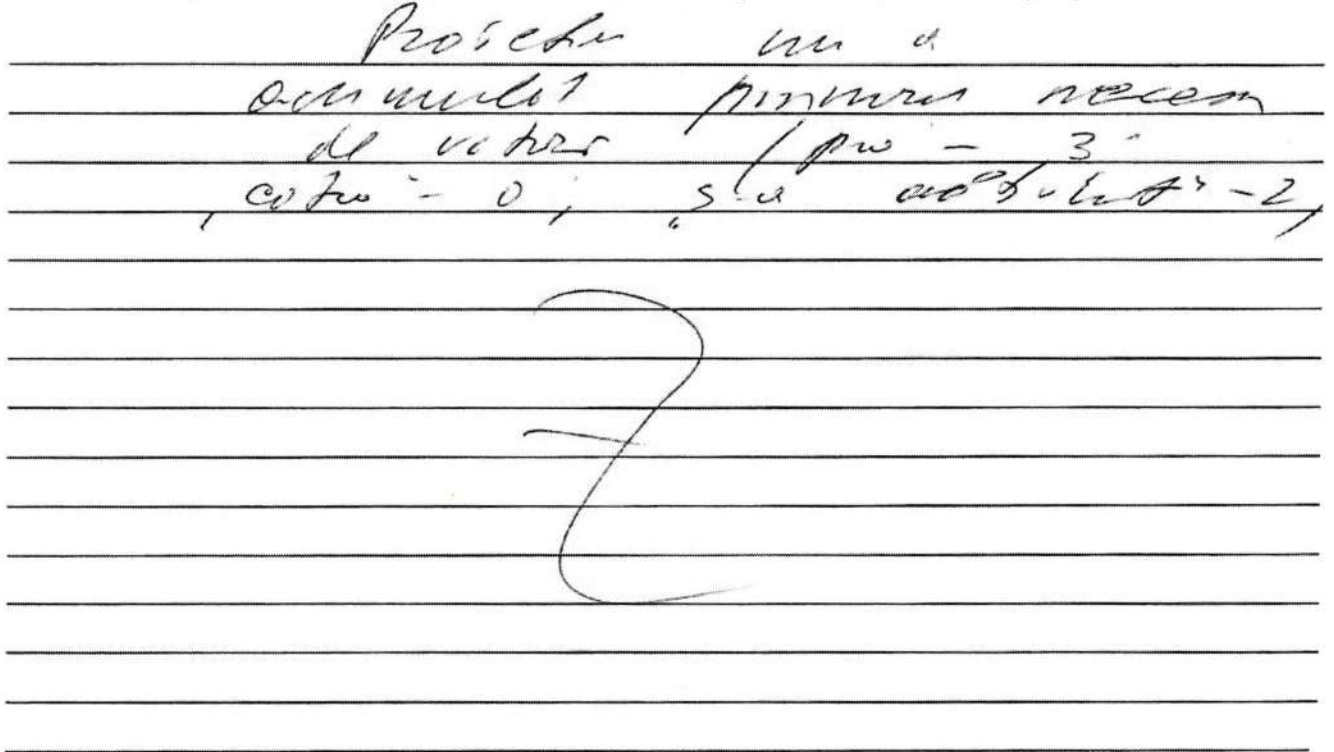 Proiectu nu a
acumulat minimum necesar
de voturi ("pro" - 3
"cotra" - 0, "s-a abtinut" - 2,